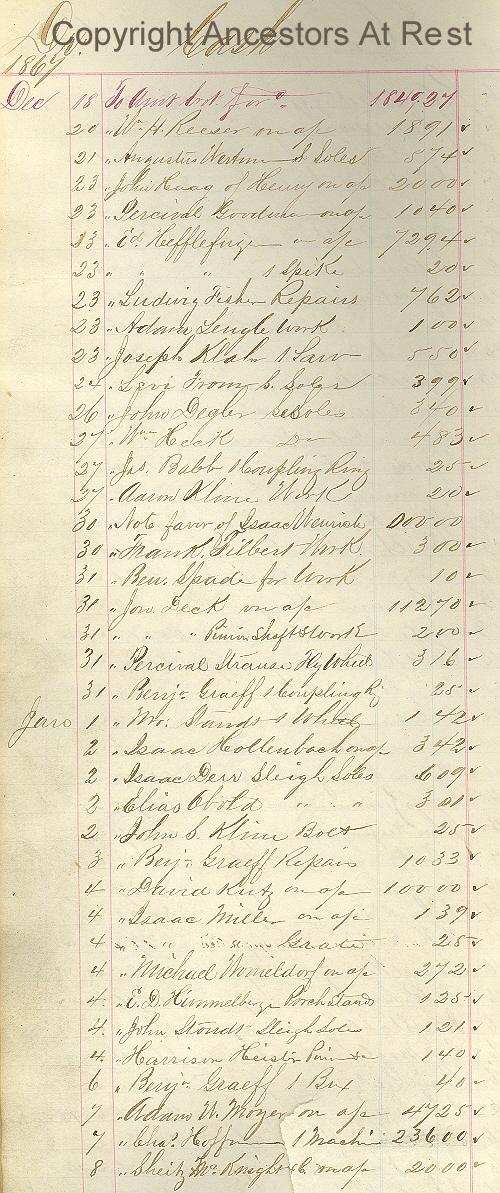 Copyright Ancestors At Rest
Dr. Cash
1867
Dec 18 To Amt brt. for^d. 1849,27
20 " Wm H. Reeser on a/c 1891
21 " Augustus S Soles 574
23 " John Haag of Henry on a/c 2000
23 " Percival Goodman on a/c 1040
23 " Ed. Hefflefinger on a/c 7294
23 " " " 1 Spike 20
23 " Ludwig Fisher Repairs 762
23 " Adam Lengle Work 100
23 " Joseph Klahr 1 Saw 550
24 " Levi From S. Soles 399
26 " John Degler Soles 340
27 " Wm Heck Do 483
27 " Jas. Babb 1 Coupling Ring 25
27 " Aaron Kline Work 20
30 " Note favor of Isaac Wenrich 00000
30 " Frank. Filbert Work 300
31 " Ben. Spade for Work 10
31 " Jon. Deck on a/c 11270
31 " " " Pinion Shaft & Work 200
31 " Percival Strause Fly Wheel 316
31 " Benjn. Graeff 1 Coupling Rg 25
Jan 1 " Mo. Stands 1 Wheel 1 42
2 " Isaac Hollenbach on a/c 342
2 " Isaac Derr Sleigh Soles 609
2 " Elias Obold " " 301
2 " John S. Kline Bolt 25
3 " Benjn. Graeff Repairs 1033
4 " David Kutz on a/c 10000
4 " Isaac Miller on a/c 139
4 " " " Grate 25
4 " Michael Womeldorf on a/c 272
4. " E. D. Himmelberger Porch stands 125
4. " John Stoudt Sleigh Soles 121
4. " Harrison Heister 140
6 " Benjn. Graeff 1 Box 40
7 " Adam W. Moyer on a/c 4725
7 " Chas. Hoffman 1 Machine 23600
8 " Sheitz McKnight & C. on a/c 2000